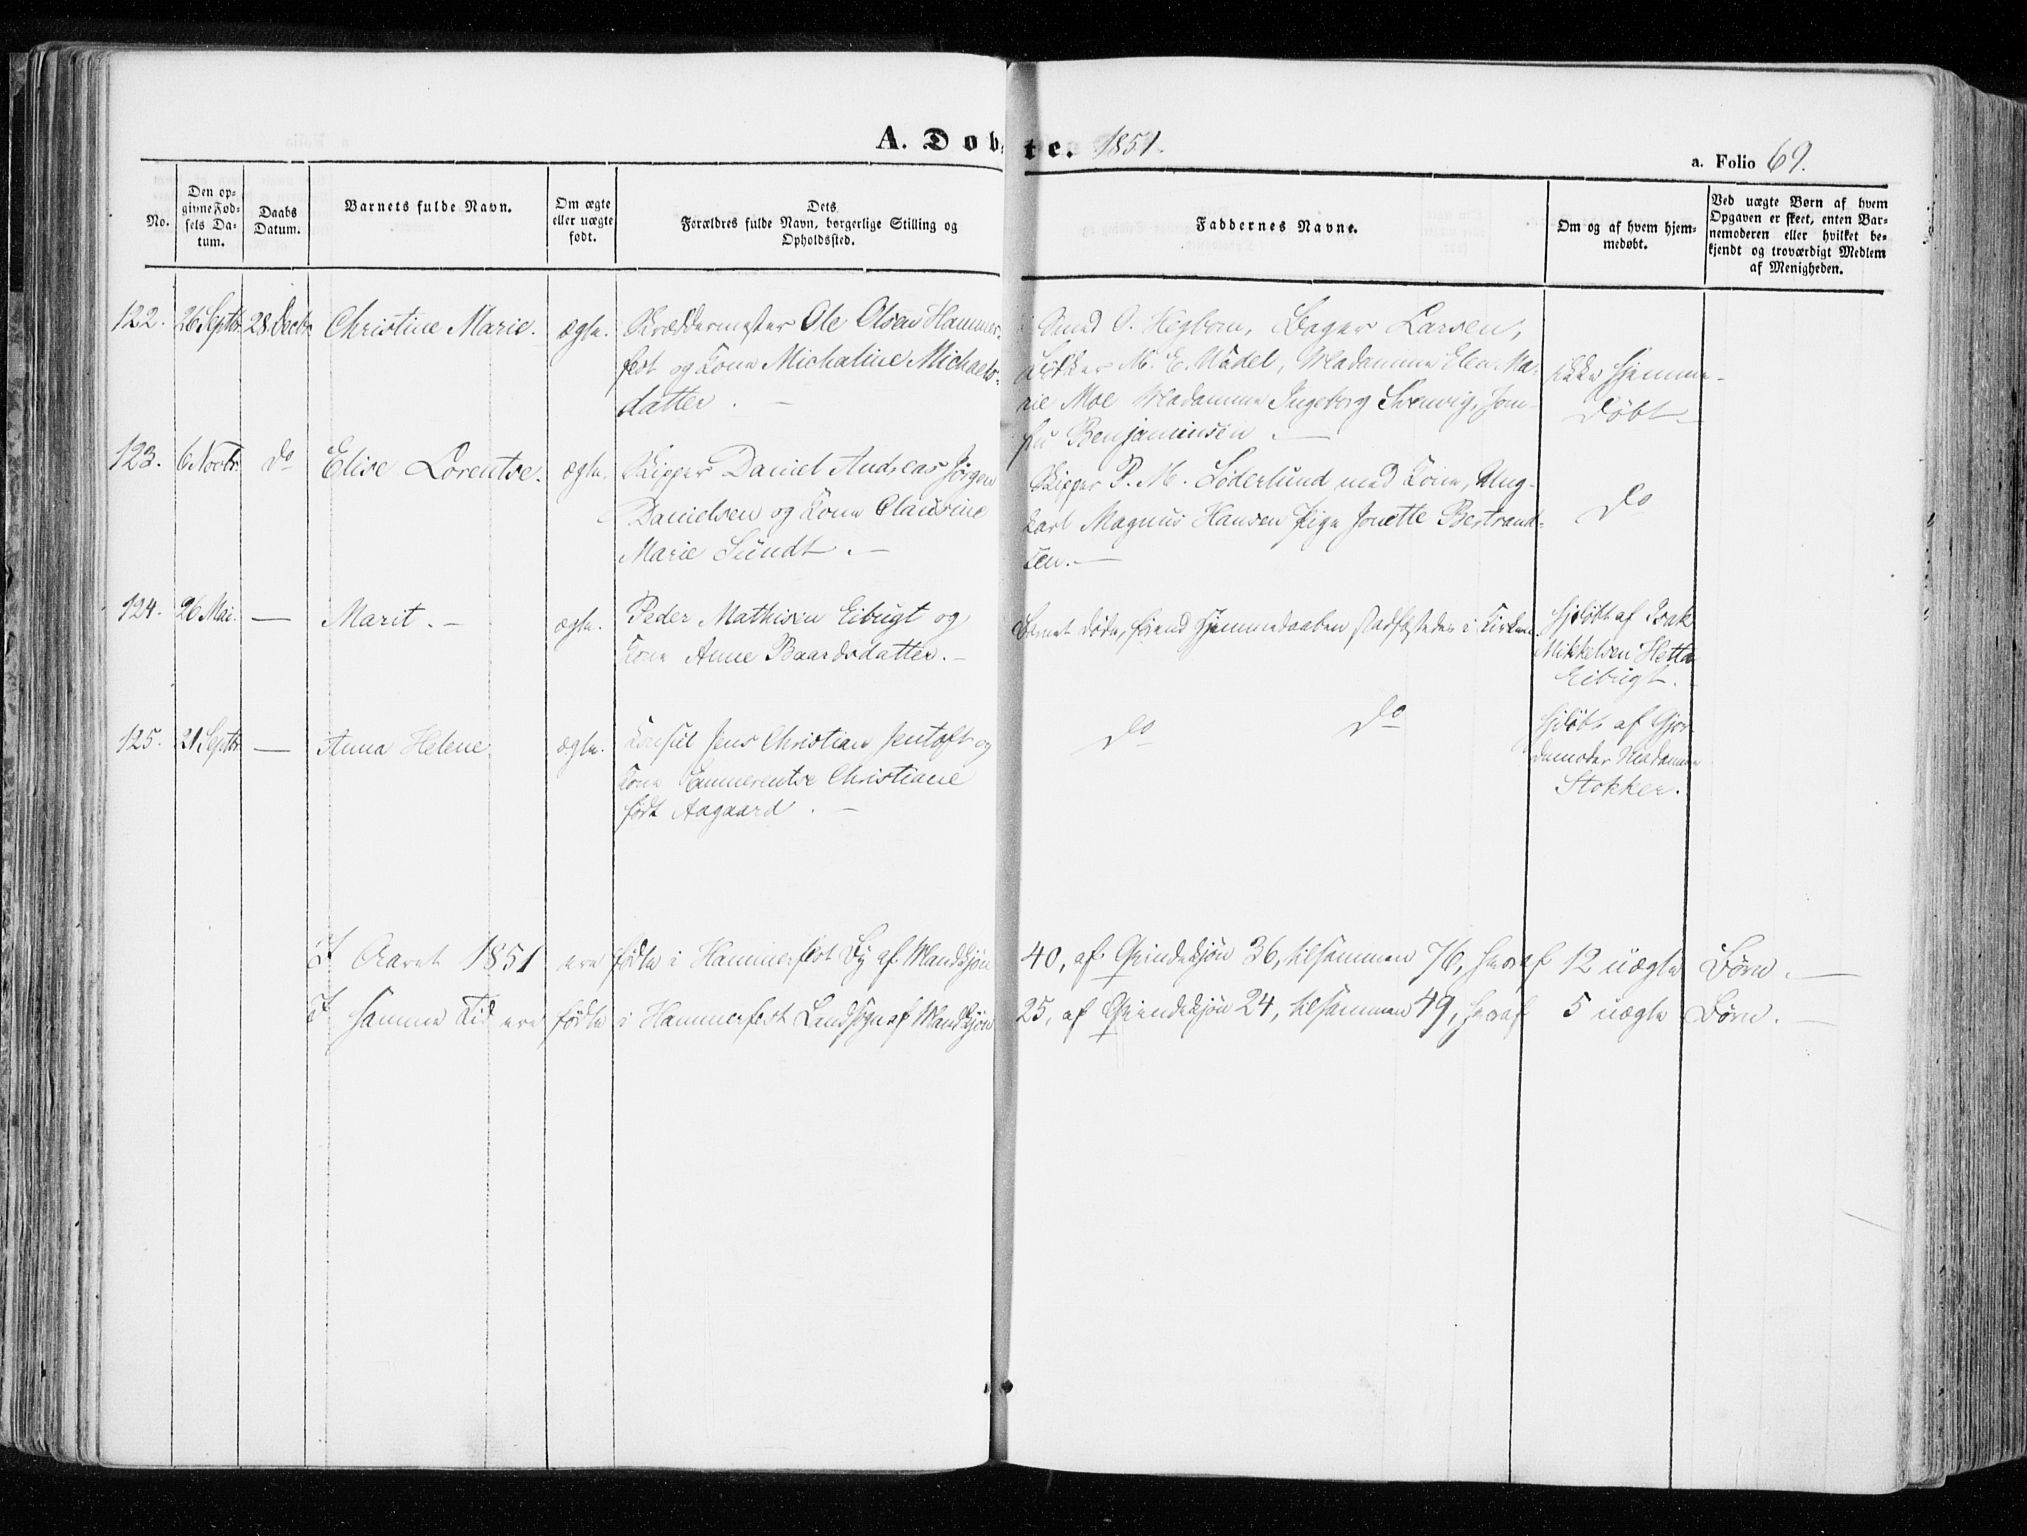 A. Døbte. 1851.
a. Folio 69.
No.
Den op-
givne Fød-
sels Da-
tum.
Daabs
Datum.
Barnets fulde Navn.
Om ægte
eller uægte
født.
Dets
Forældres fulde Navn, borgerlige Stilling og
Opholdssted.
Faddernes Navne.
Om og af hvem hjem-
medøbt.
Ved uægte Børn af hvem
Opgaven er skeet, enten Bar-
nemoderen eller hvilket be-
kjendt og troværdigt Medlem
af Menigheden.
122. 26 Septbr. 28 Decbr. Christine Marie. ægte.
Skræddermester Ole Olsen Hammer-
fest og Kone Michaline Michaels-
datter. —
Smed O. Hegbom, Bager Larsen,
M. E. Wadel, Madamme Elen Ma-
rie Moe Madamme Ingeborg Svenvig, Jom-
fru Benjaminsen. —
ikke hjemme-
døbt
123. 6 Novbr. do Elise Lorentse. ægte.
Skipper Daniel Andreas Jørgen
Danielsen og Kone Claurine
Marie Sundt. —
Skipper P. M. Söderlund med Kone, Ung-
karl Magnus Hansen Pige Jonette Bertrand-
sen. —
do
124. 26 Mai. — Marit. — ægte.
Peder Mathisen Eibugt og
Kone Anne Baardsdatter. —
Barnet døde, førend Hjemmedaaben stadfæstedes i Kirken.
Hjdøbt af Isak
Mikkelsen Hetta
Eibugt.
125. 21 Septbr. — Anna Helene ægte.
Konsul Jens Christian Jentoft og
Kone Emmerentse Christiane
født Aagaard. —
do do
Hjdøbt af Gjor-
demoder Madamme
Stokker.
I Aaret 1851 ere fødte i Hammerfest By af Mandkjøn 40, af Qvindekjøn 36, tilsammen 76, heraf 12 uægte Børn. —
I samme Tid ere fødte i Hammerfest Landsogn af Mandkjøn 25, af Qvindekjøn 24, tilsammen 49, heraf 5 uægte Børn. —